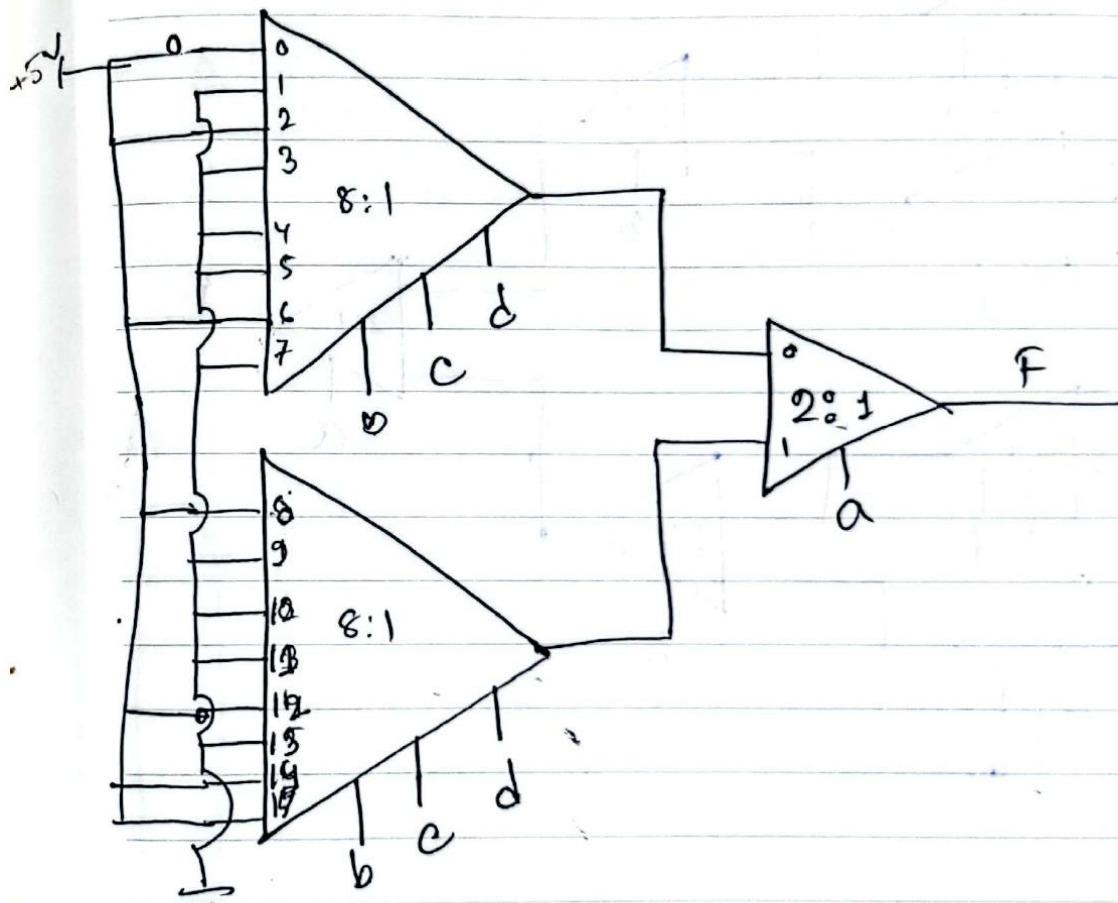 +5V
0
0
1
2
3
4
5
6
7
8:1
b
c
d
8
9
10
11
12
13
14
15
8:1
b
c
d
0
1
2:1
a
F